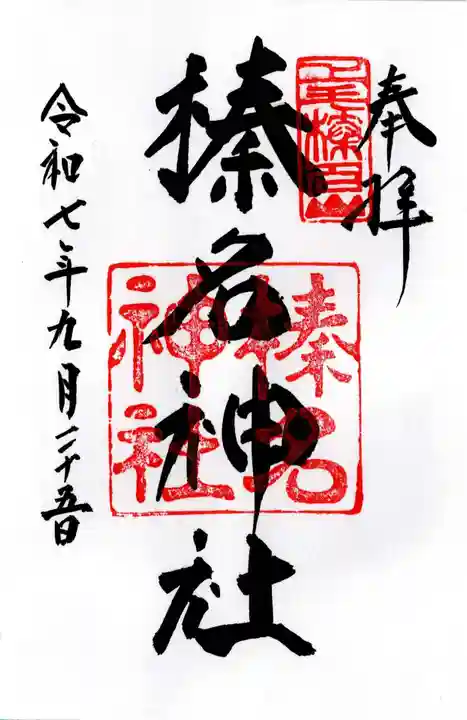 奉拝
上毛榛名山
榛名神社
榛名
神社
令和七年九月二十五日